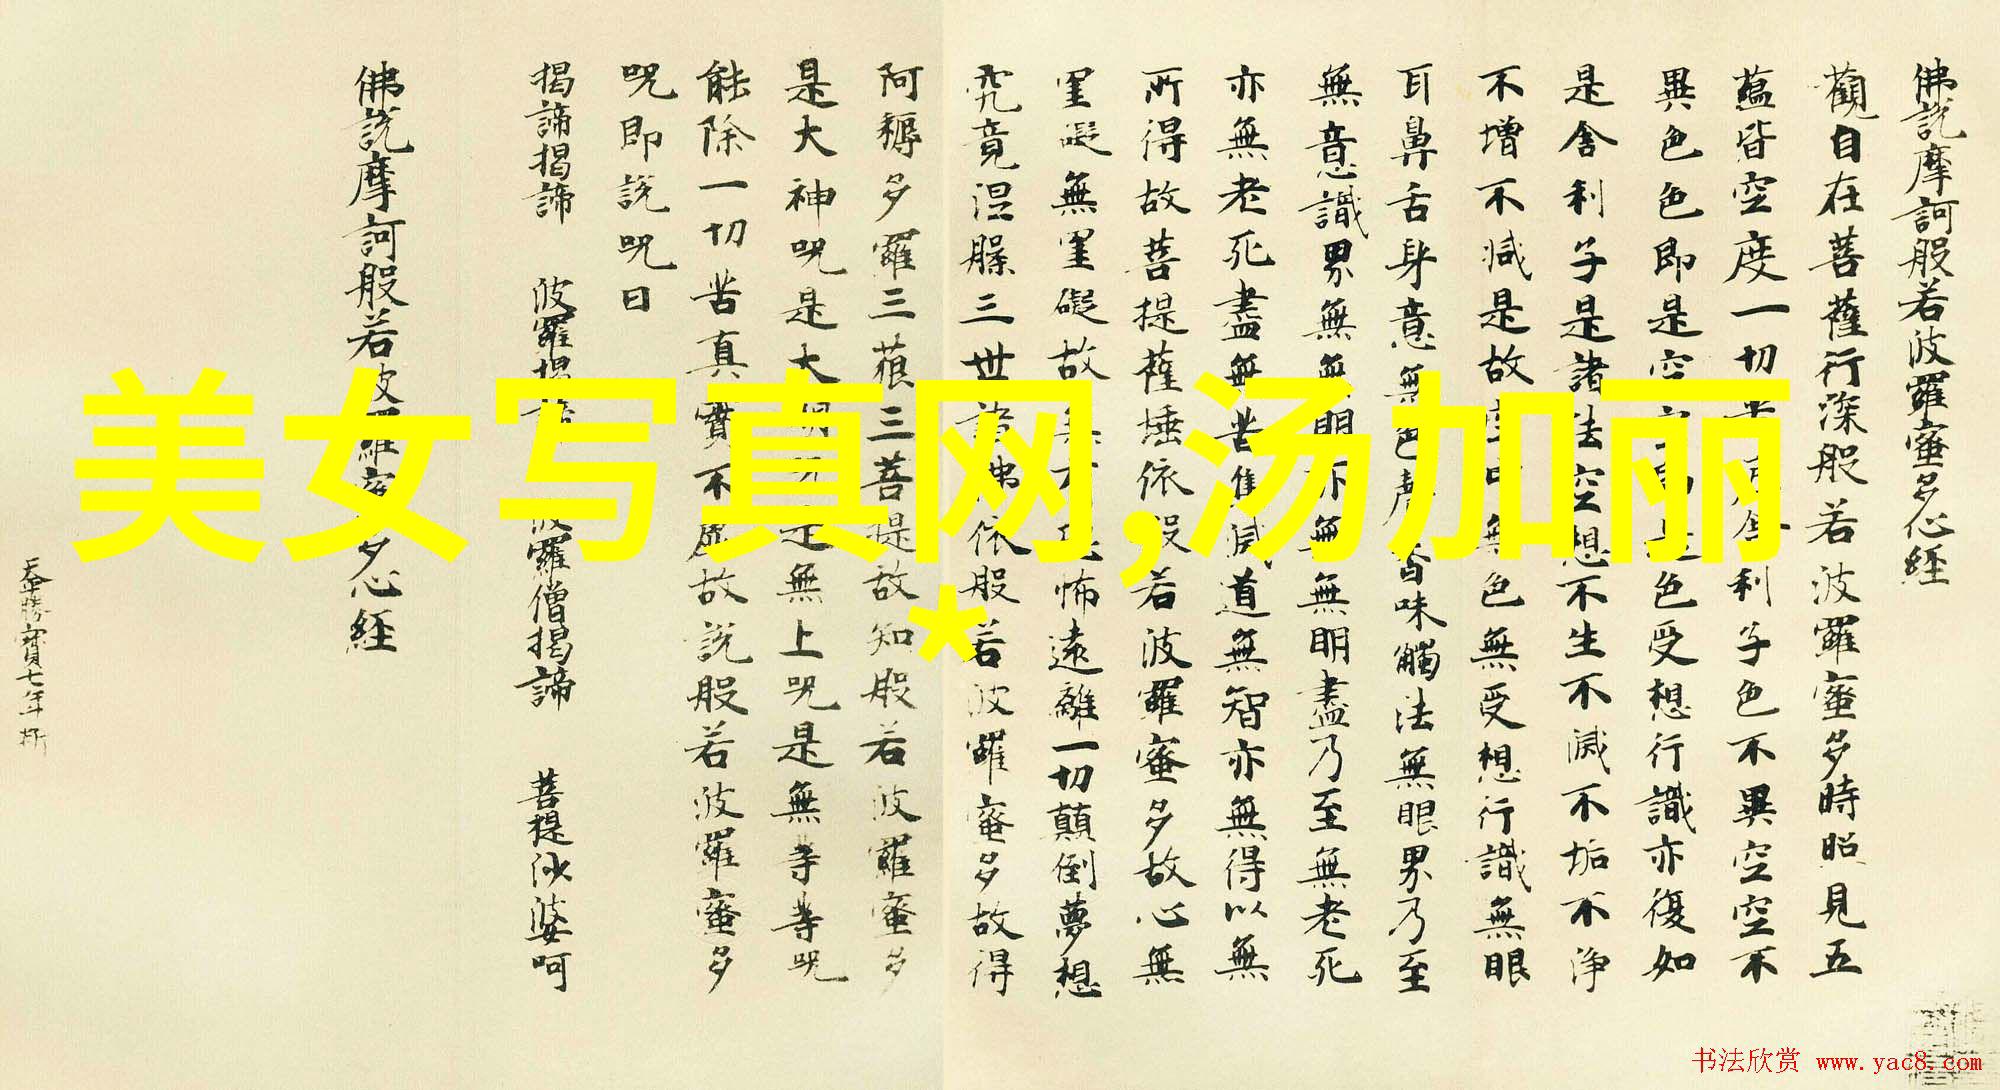 佛説摩訶般若波羅蜜多心経
觀自在菩薩行深般若波羅蜜多時照見五
蘊皆空度一切利子色不異空空不
異色色即是空色受想行識亦復如
是舍利子是諸法空想不生不滅不垢不淨
不增不減是故無色無受想行識無眼
耳鼻舌身意無色香味觸法無眼界乃至
無意識界無無明亦無無明盡乃至無老死
亦無老死盡無苦集滅道無智亦無得以無
所得故菩提薩埵依般若波羅蜜多故心無
罣礙無罣礙故無怖遠離一切顛倒夢想
究竟涅槃三世諸佛依般若波羅蜜多故得
阿耨多羅三藐三菩提故知般若波羅蜜多
是大神咒是大明是無上咒是無等等咒
能除一切苦真實不虛故説般若波羅蜜多
咒即説咒曰
揭諦揭諦 波羅揭諦 波羅僧揭諦 菩提沙婆呵
佛説摩訶般若波羅蜜多心経
天平勝寳七年
美女写真网,汤加丽
*
书法欣赏 www.yac8.com